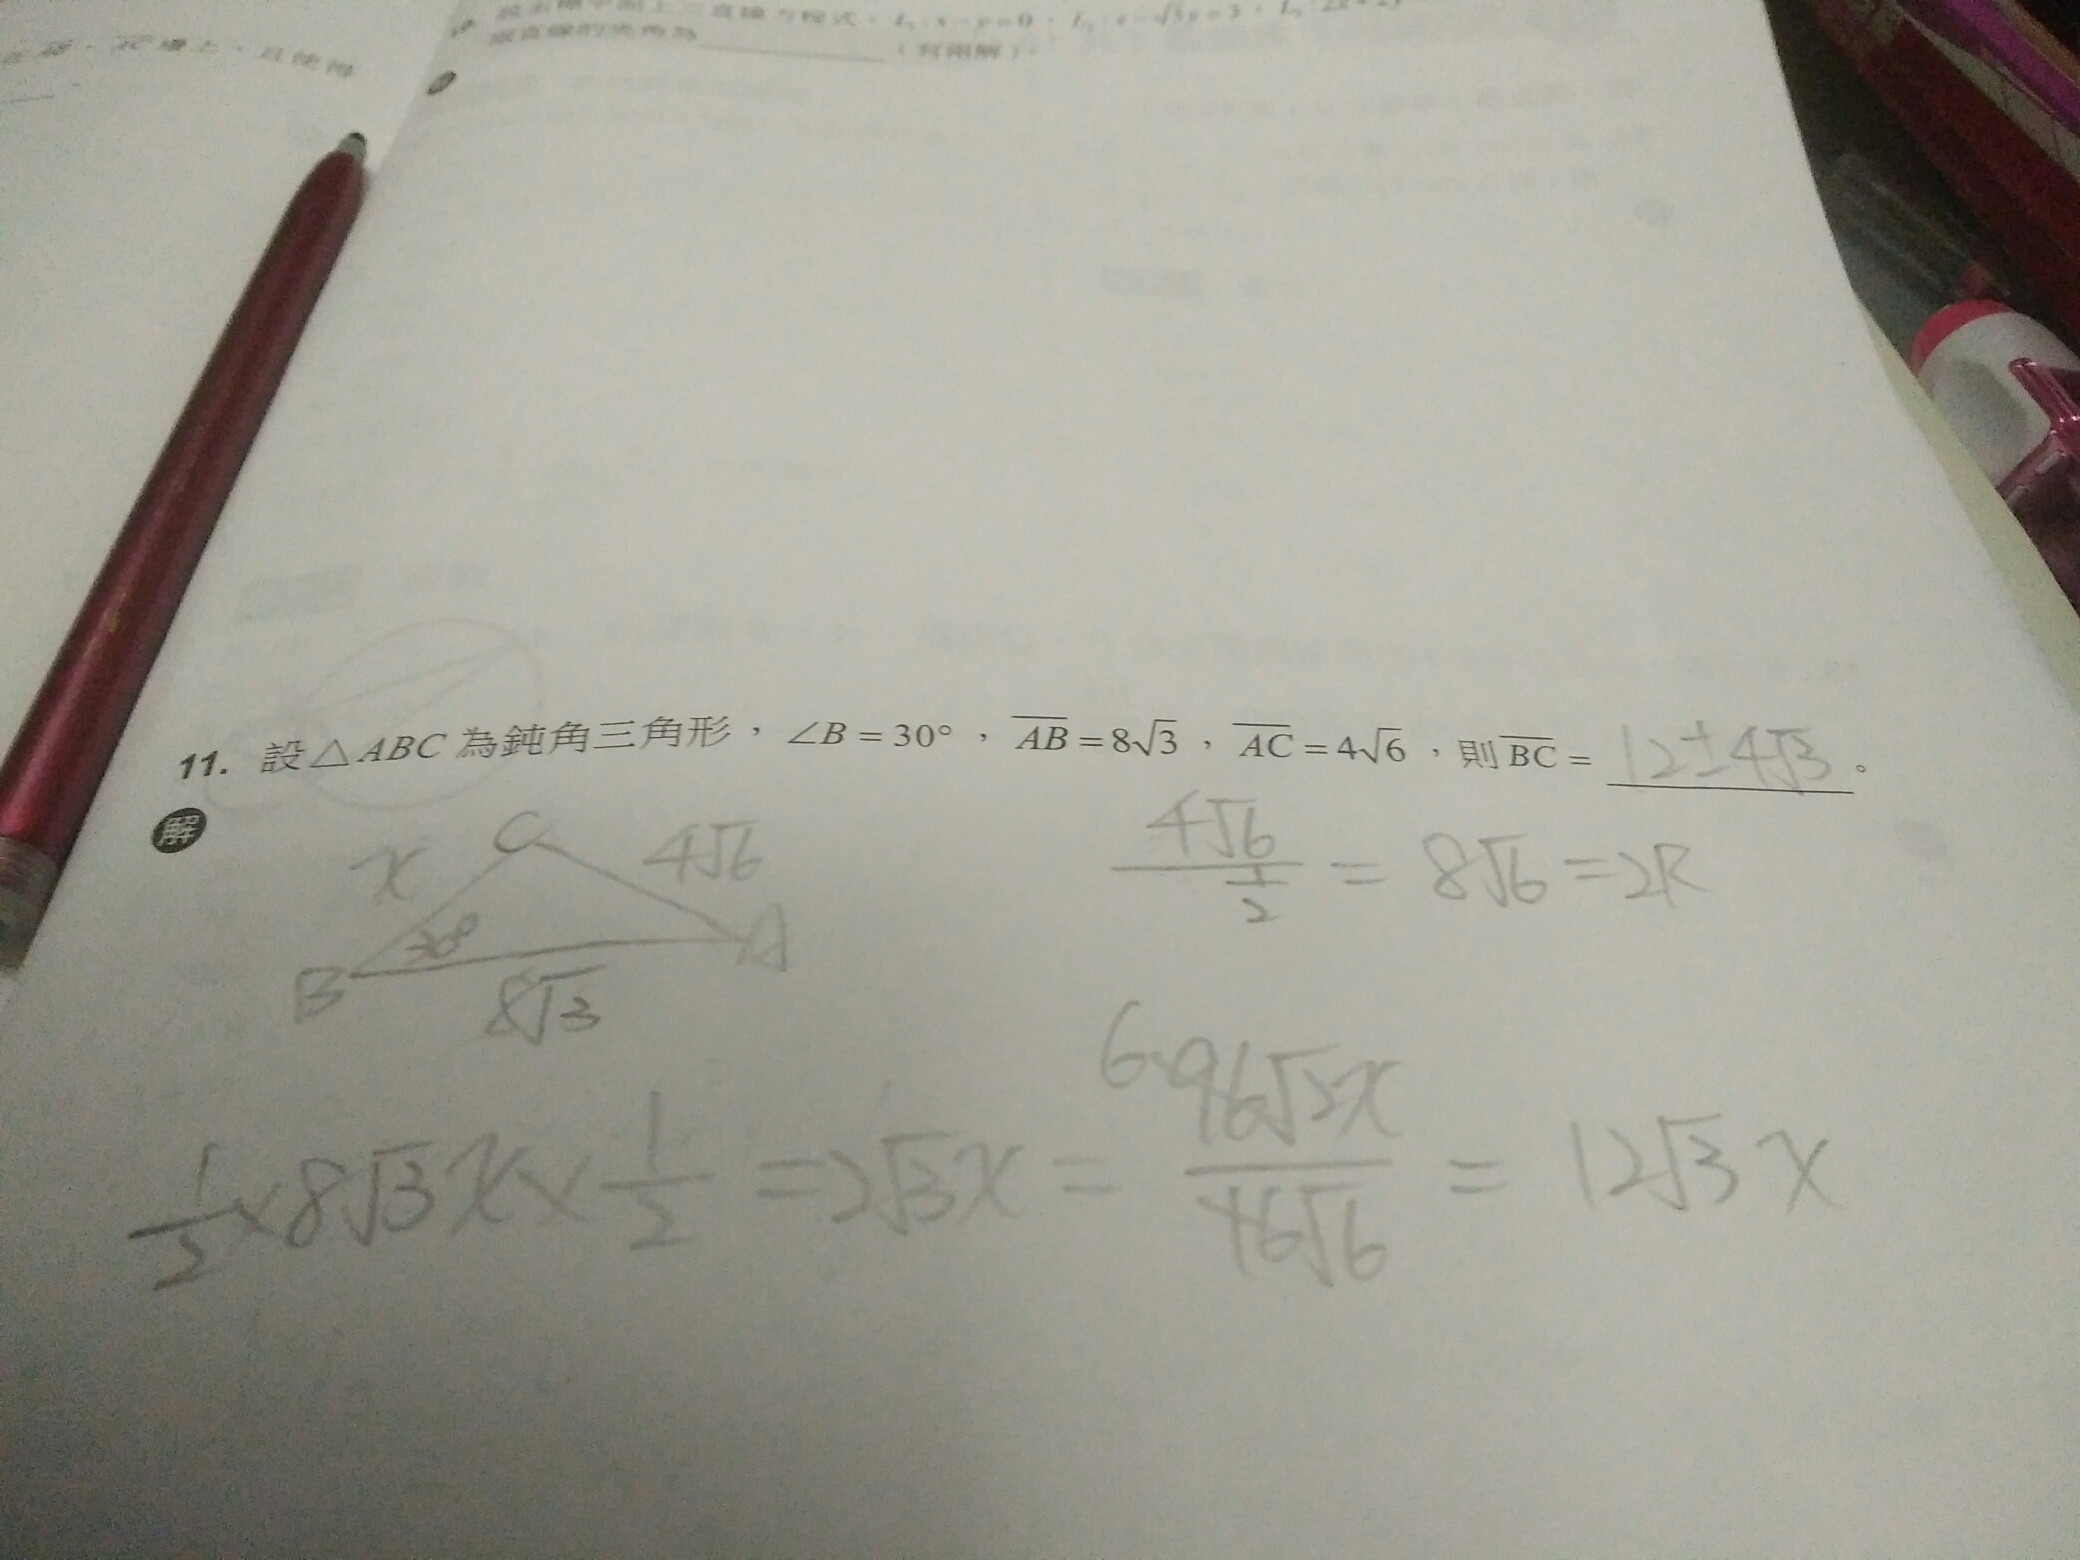 邊上,且使得
直線方程式,L₁:x-y=0,L₂:x-√3y=3,L₃:2x+2y
(有兩解)。
11. 設△ABC為鈍角三角形,∠B=30°,AB=8√3,AC=4√6,則BC= 12±4√3。
解
C
x
4√6
30°
B
A
8√3
4√6/(1/2) = 8√6 = 2R
1/2×8√3x×1/2=2√3x= 96√2x/16√6 = 12√3x
6